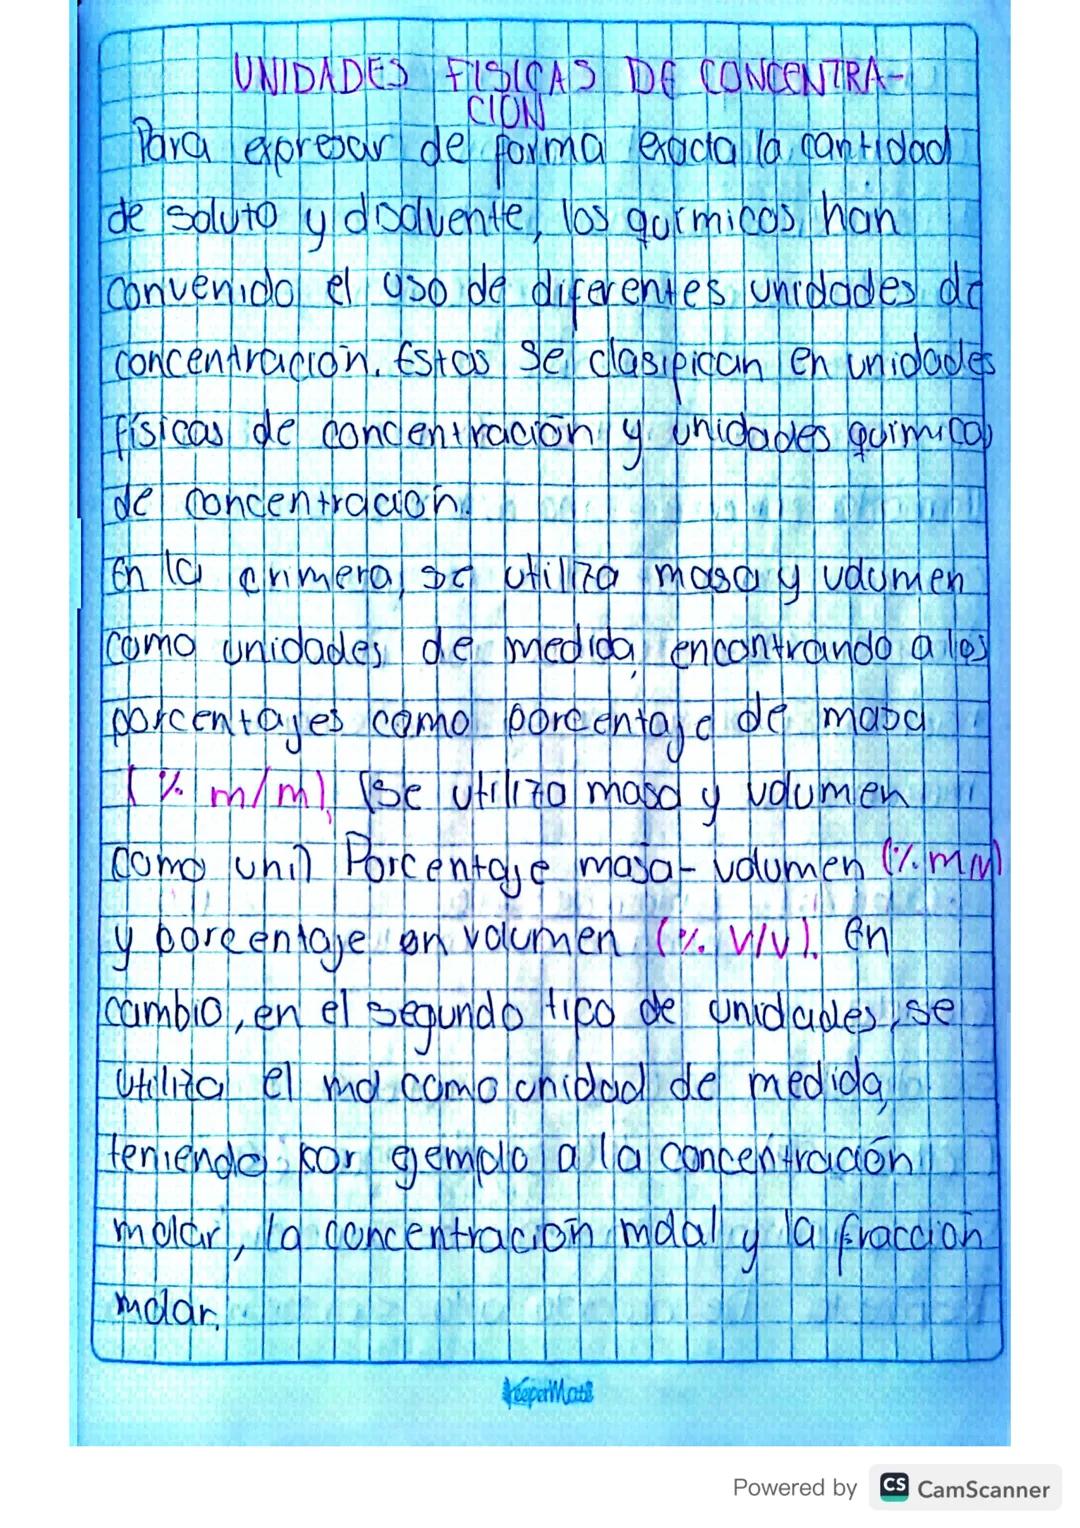 UNIDADES FISICAS DE CONCENTRA-
CION
Para expresar de forma exacta la cantidad
de soluto y disolvente, los químicos, han
convenido el uso de diferentes unidades de
concentración. Estas se clasifican en unidades
físicas de concentración y unidades químicas
de concentración.
En la primera, se utiliza masa y volumen
como unidades de medida, encontrando a los
porcentajes como porcentaje de masa
(% m/m), (se utiliza masa y volumen
como uni) Porcentaje masa-volumen (% m/v)
y porcentaje en volumen (% v/v). En
cambio, en el segundo tipo de unidades, se
utiliza el mol como unidad de medida,
teniendo por ejemplo a la concentración
molar, la concentración molal y la fracción
molar.
KeeperMate
Powered by CS CamScanner